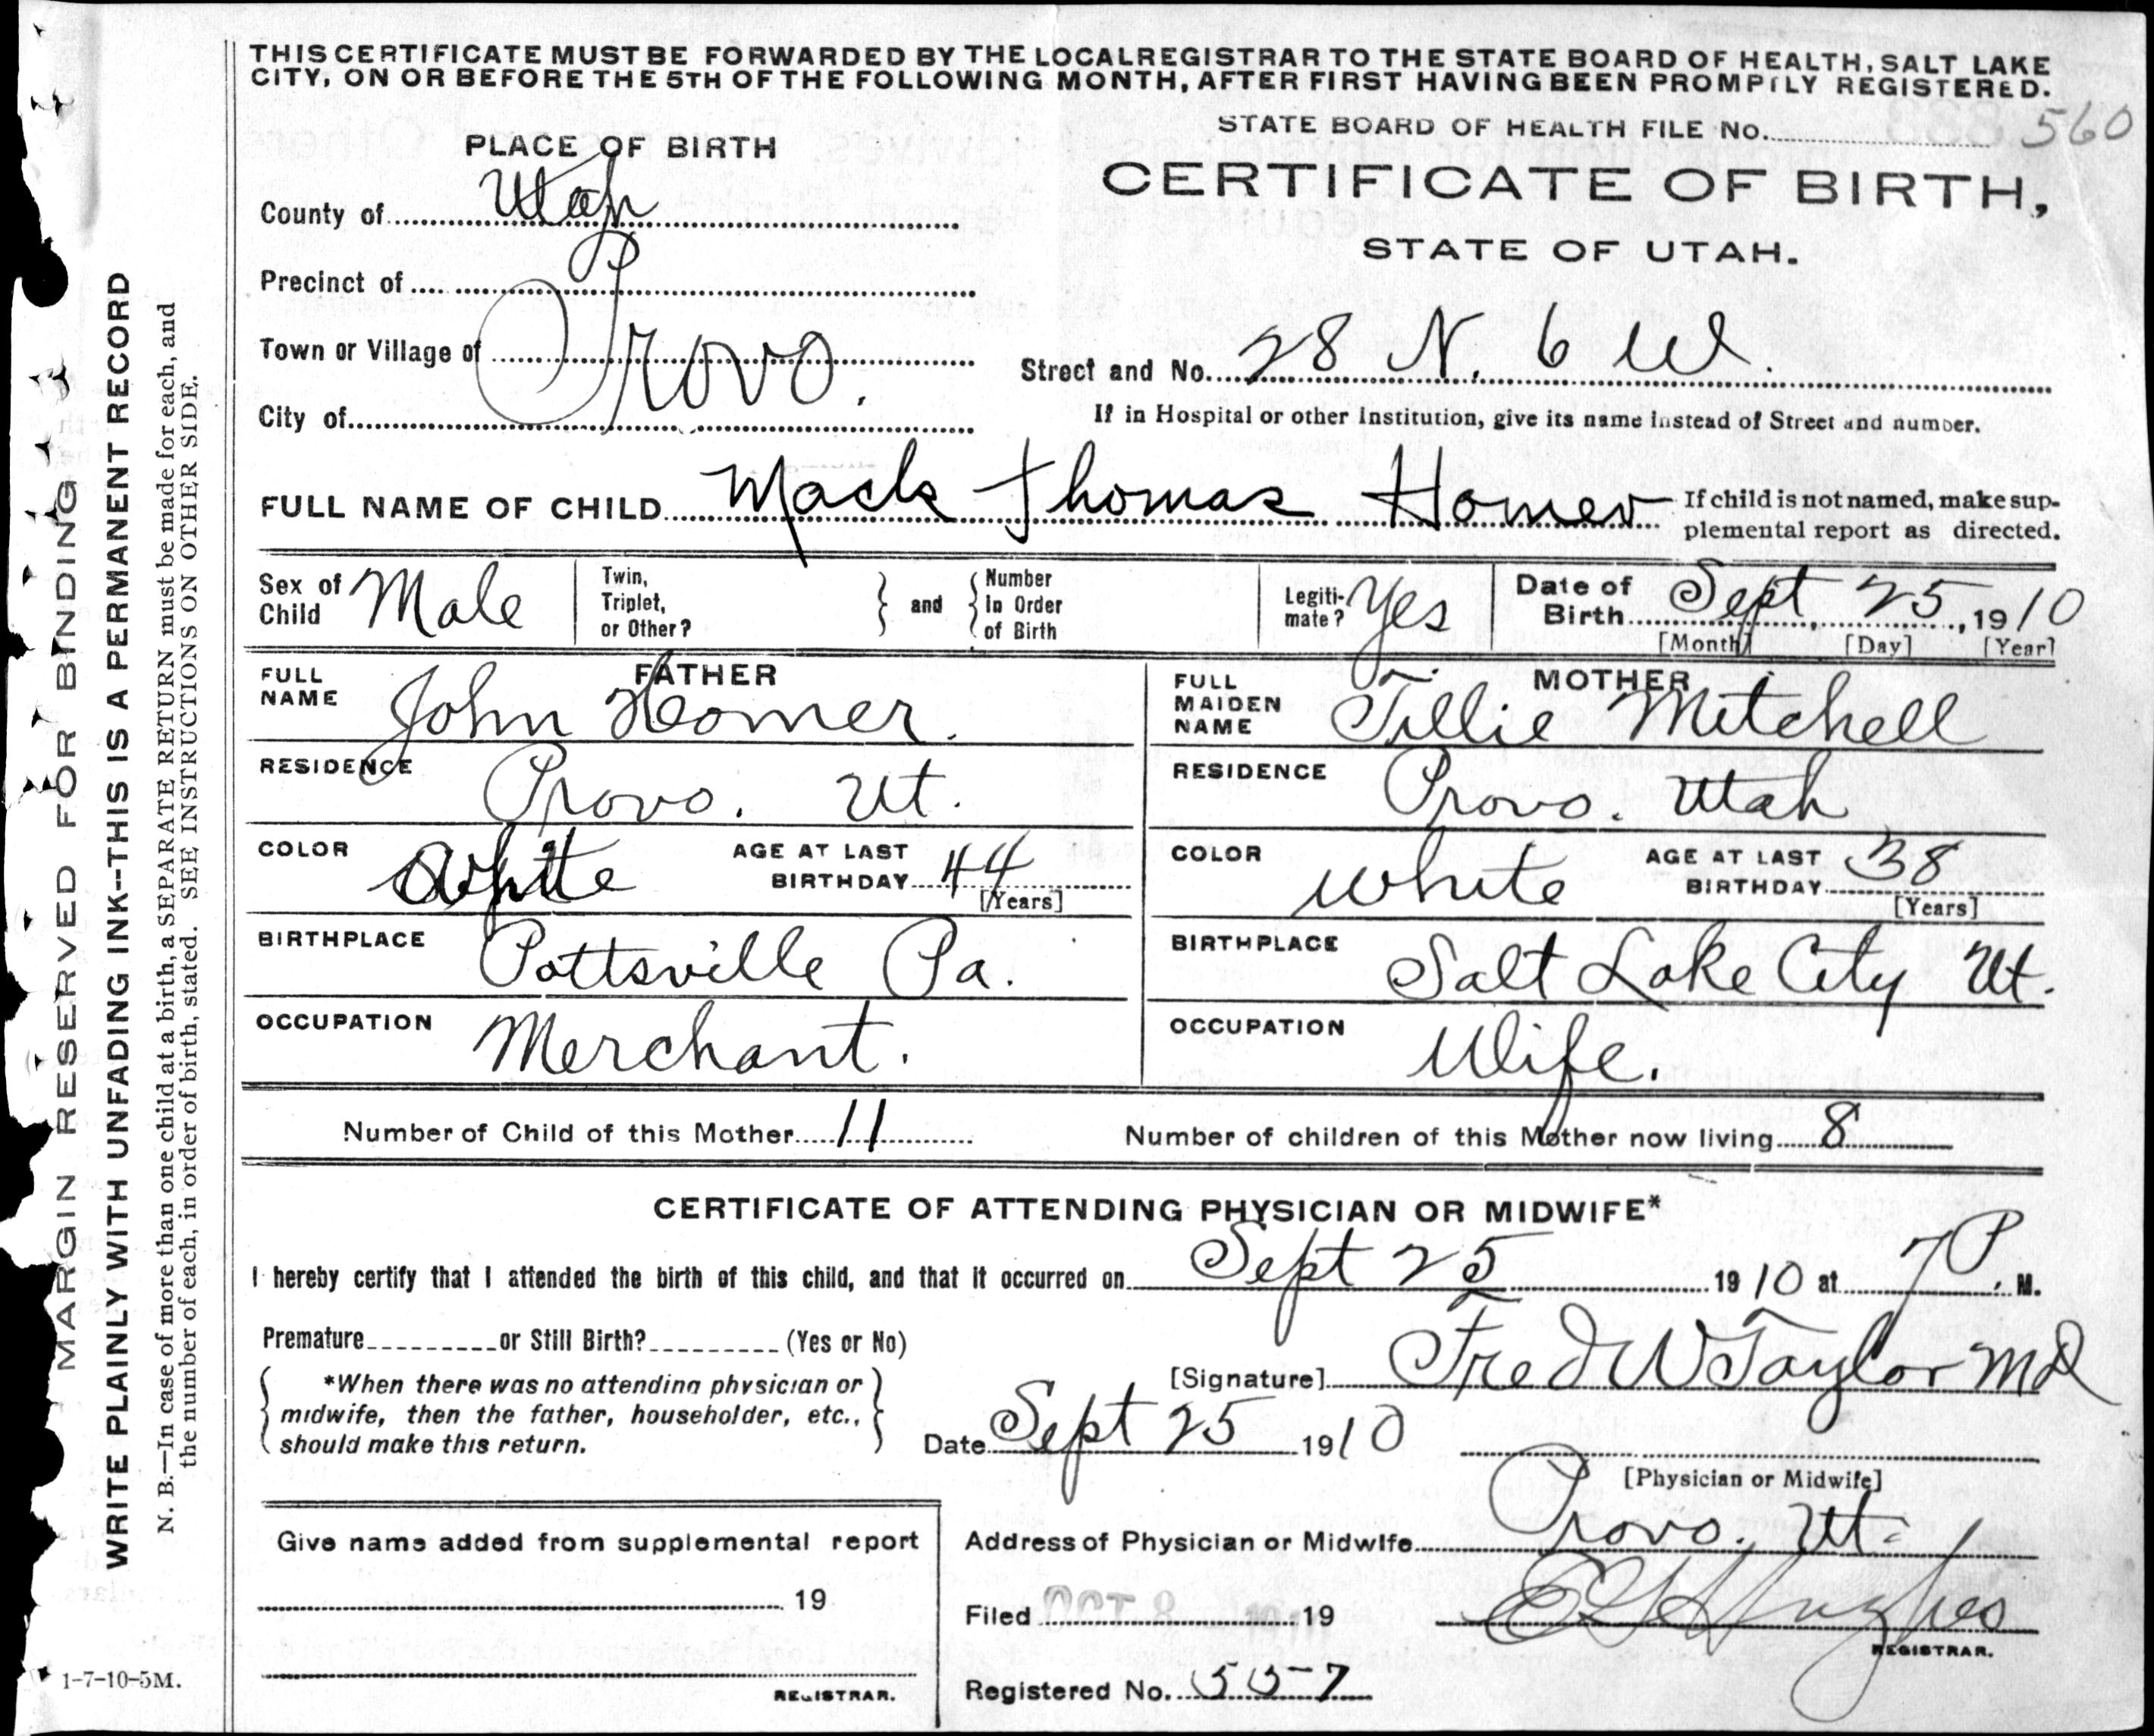 THIS CERTIFICATE MUST BE FORWARDED BY THE LOCAL REGISTRAR TO THE STATE BOARD OF HEALTH, SALT LAKE
CITY, ON OR BEFORE THE 5TH OF THE FOLLOWING MONTH, AFTER FIRST HAVING BEEN PROMPTLY REGISTERED.
STATE BOARD OF HEALTH FILE NO. 560
PLACE OF BIRTH
CERTIFICATE OF BIRTH,
STATE OF UTAH.
County of Utah
Precinct of
Town or Village of Provo.
City of
Street and No. 28 N. 6 W.
If in Hospital or other Institution, give its name instead of Street and number.
FULL NAME OF CHILD Mack Thomas Homer
If child is not named, make sup-
plemental report as directed.
Sex of Child Male
Twin, Triplet, or Other?
and
Number In Order of Birth
Legiti-mate? Yes
Date of Birth Sept 25, 1910
[Month] [Day] [Year]
FATHER
FULL NAME John Homer.
RESIDENCE Provo. Ut.
COLOR White
AGE AT LAST BIRTHDAY 44
[Years]
BIRTHPLACE Pottsville Pa.
OCCUPATION Merchant.
MOTHER
FULL MAIDEN NAME Tillie Mitchell
RESIDENCE Provo. Utah
COLOR White
AGE AT LAST BIRTHDAY 38
[Years]
BIRTHPLACE Salt Lake City Ut.
OCCUPATION Wife.
Number of Child of this Mother 11
Number of children of this Mother now living 8
CERTIFICATE OF ATTENDING PHYSICIAN OR MIDWIFE*
I hereby certify that I attended the birth of this child, and that it occurred on Sept 25 1910 at 7 P. M.
Premature or Still Birth? (Yes or No)
*When there was no attending physician or
midwife, then the father, householder, etc.,
should make this return.
[Signature] Fred W Taylor MD
Date Sept 25 1910
[Physician or Midwife]
Give name added from supplemental report
19
REGISTRAR.
Address of Physician or Midwife Provo. Ut.
Filed OCT 8 1910 19
Hughes
REGISTRAR.
Registered No. 557
MARGIN RESERVED FOR BINDING
WRITE PLAINLY WITH UNFADING INK--THIS IS A PERMANENT RECORD
N. B.—In case of more than one child at a birth, a SEPARATE RETURN must be made for each, and
the number of each, in order of birth, stated. SEE INSTRUCTIONS ON OTHER SIDE.
1-7-10-5M.